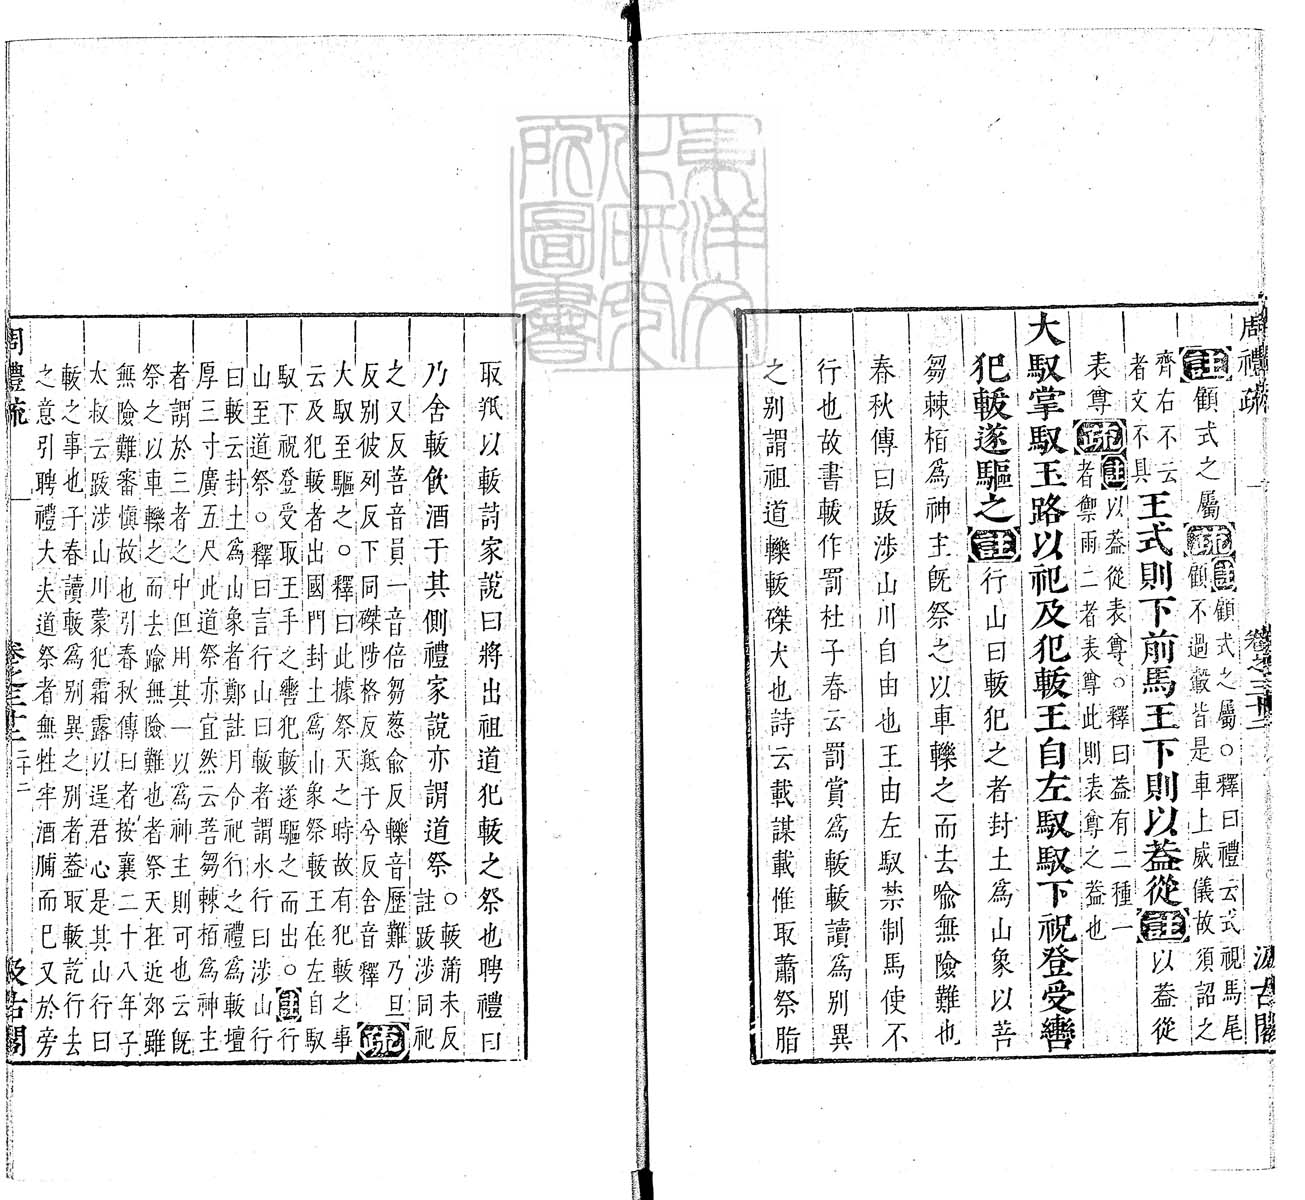 周禮疏
卷之三十二
汲古閣
註顧式之屬疏註顧式之屬○釋曰禮云式視馬尾
顧不過轂皆是車上威儀故須詔之
齊右不云
者文不具
王式則下前馬王下則以蓋從註以蓋從
表尊疏註以蓋從表尊○釋曰蓋有二種一
者禦雨二者表尊此則表尊之蓋也
大馭掌馭玉路以祀及犯軷王自左馭馭下祝登受轡
犯軷遂驅之註行山曰軷犯之者封土爲山象以菩
芻棘栢爲神主旣祭之以車轢之而去喻無險難也
春秋傳曰跋涉山川自由也王由左馭禁制馬使不
行也故書軷作罰杜子春云罰賞爲軷軷讀爲別異
之別謂祖道轢軷磔犬也詩云載謀載惟取蕭祭脂
取羝以軷詩家說曰將出祖道犯軷之祭也聘禮曰
乃舍軷飲酒于其側禮家說亦謂道祭○軷蒲末反
註跋涉同祀
之又反菩音員一音倍芻蔥俞反轢音歷難乃旦
反別彼列反下同磔陟格反羝于兮反舍音釋疏
大馭至驅之○釋曰此據祭天之時故有犯軷之事
云及犯軷者出國門封土爲山象祭軷王在左自馭
馭下祝登受取王手之轡犯軷遂驅之而出○註行
山至道祭○釋曰言行山曰軷者謂水行曰涉山行
曰軷云封土爲山象者鄭註月令祀行之禮爲軷壇
厚三寸廣五尺此道祭亦宜然云菩芻棘栢爲神主
者謂於三者之中但用其一以爲神主則可也云旣
祭之以車轢之而去踰無險難也者祭天在近郊雖
無險難審愼故也引春秋傳曰者按襄二十八年子
太叔云跋涉山川蒙犯霜露以逞君心是其山行曰
軷之事也子春讀軷爲別異之別者蓋取軷訖行去
之意引聘禮大夫道祭者無牲牢酒脯而已又於旁
周禮疏
卷之三十二
二十二
汲古閣